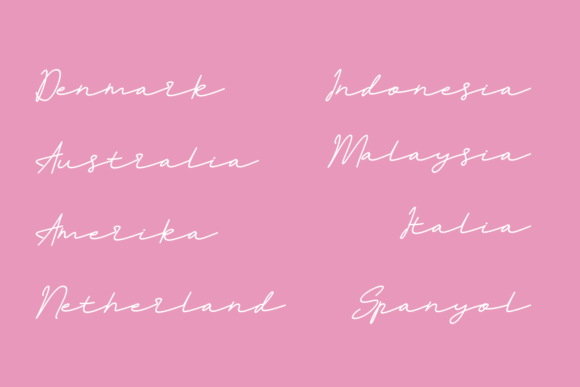 Denmark
Australia
Amerika
Netherland
Indonesia
Malaysia
Italia
Spanyol